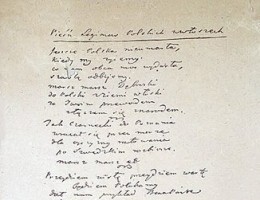 Pieśń Legionów Polskich we Włoszech
Jeszcze Polska nie umarła,
kiedy my żyjemy,
co nam obca moc wydarła,
szablą odbijemy.
marsz marsz Dąbrowski
do Polski z ziemi włoski
za Twoim przewodem
złączem się z narodem.
Jak Czarnecki do Poznania
wracał się przez morze
dla ojczyzny ratowania
po Szwedzkim rozbiorze.
marsz marsz
Przejdziem Wisłę przejdziem Wartę
będziem Polakami
dał nam przykład Bonaparte